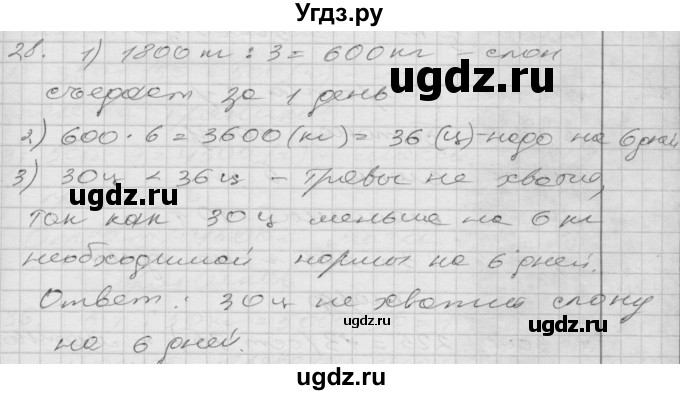 Угдз.ру
28. 1) 1800 кг : 3 = 600 кг – слон
съедает за 1 день
2) 600 · 6 = 3600 (кг) = 36 (ц) - надо на 6 дней
3) 30 ц < 36 ц – травы не хватит,
так как 30 ц меньше на 6 кг
необходимой нормы на 6 дней.
Ответ: 30 ц не хватит слону
на 6 дней.
ugdz.ru
ugdz.ru
ugdz.ru
ugdz.ru
ugdz.ru